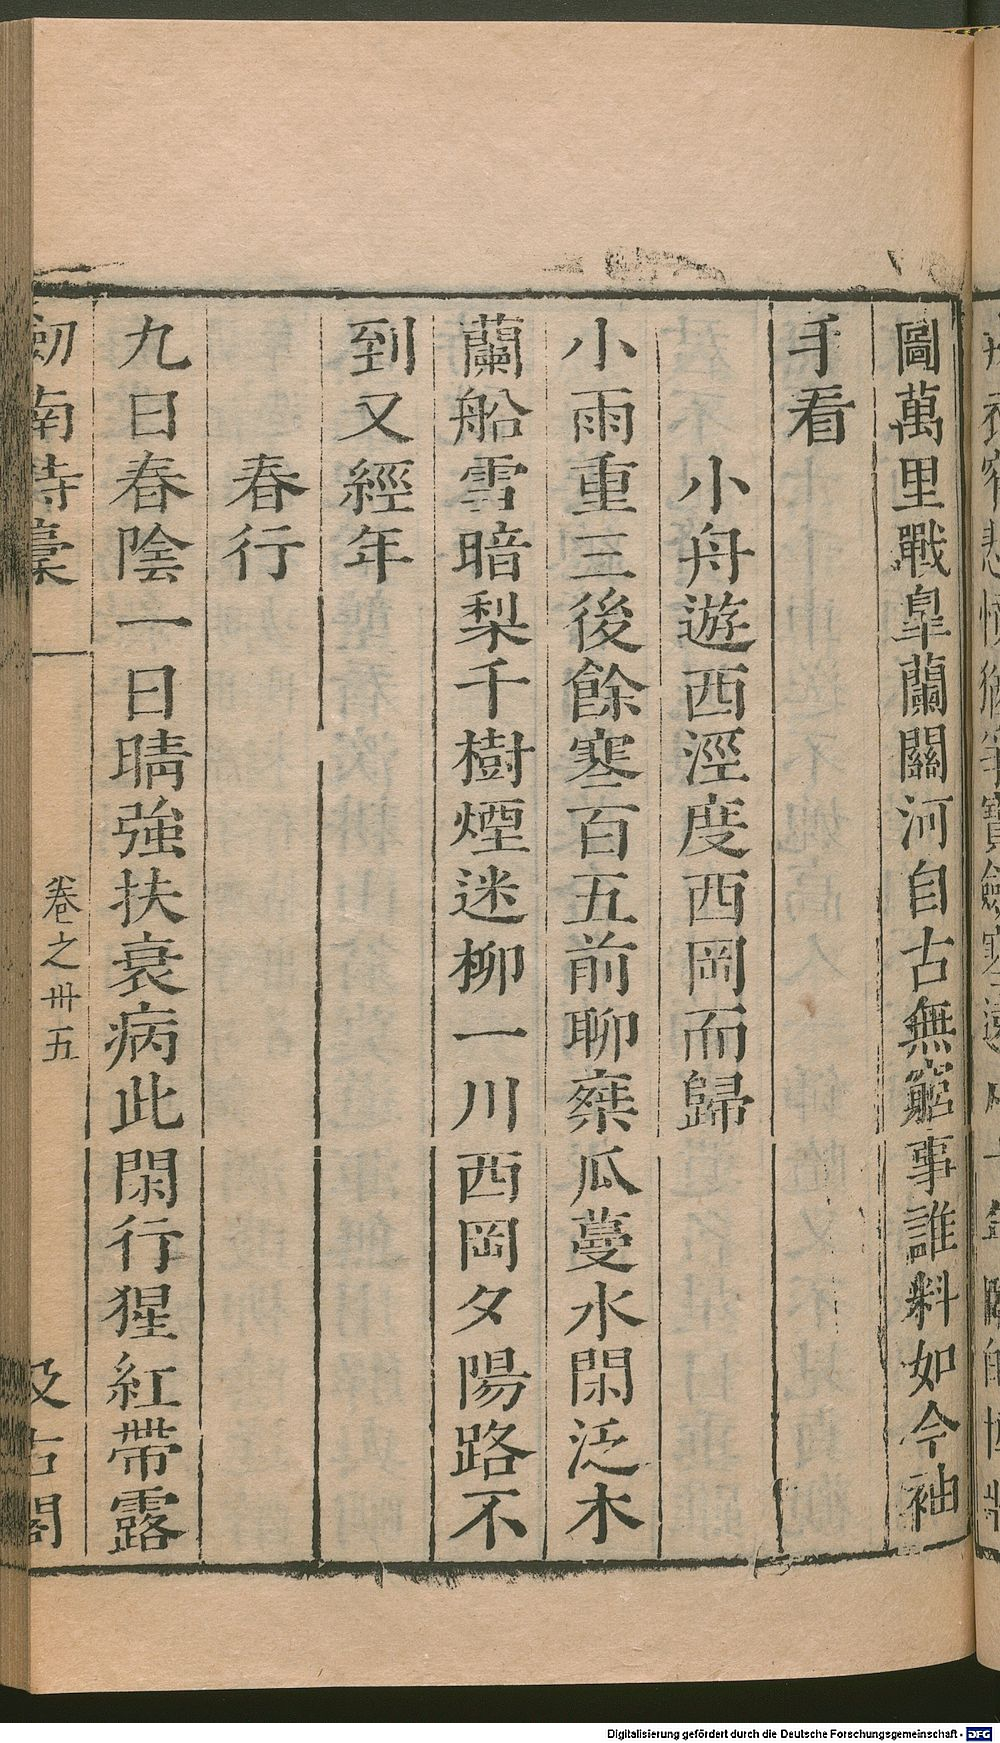 圖萬里戰臯蘭關河自古無窮事誰料如今袖
手看
小舟遊西涇度西岡而歸
小雨重三後餘寒百五前聊乗瓜蔓水閑泛木
蘭船雪暗梨千樹煙迷柳一川西岡夕陽路不
到又經年
春行
九日春陰一日晴強扶衰病此閑行猩紅帶露
劒南詩藁
卷之卅五
汲古閣
Digitalisierung gefördert durch die Deutsche Forschungsgemeinschaft - DFG